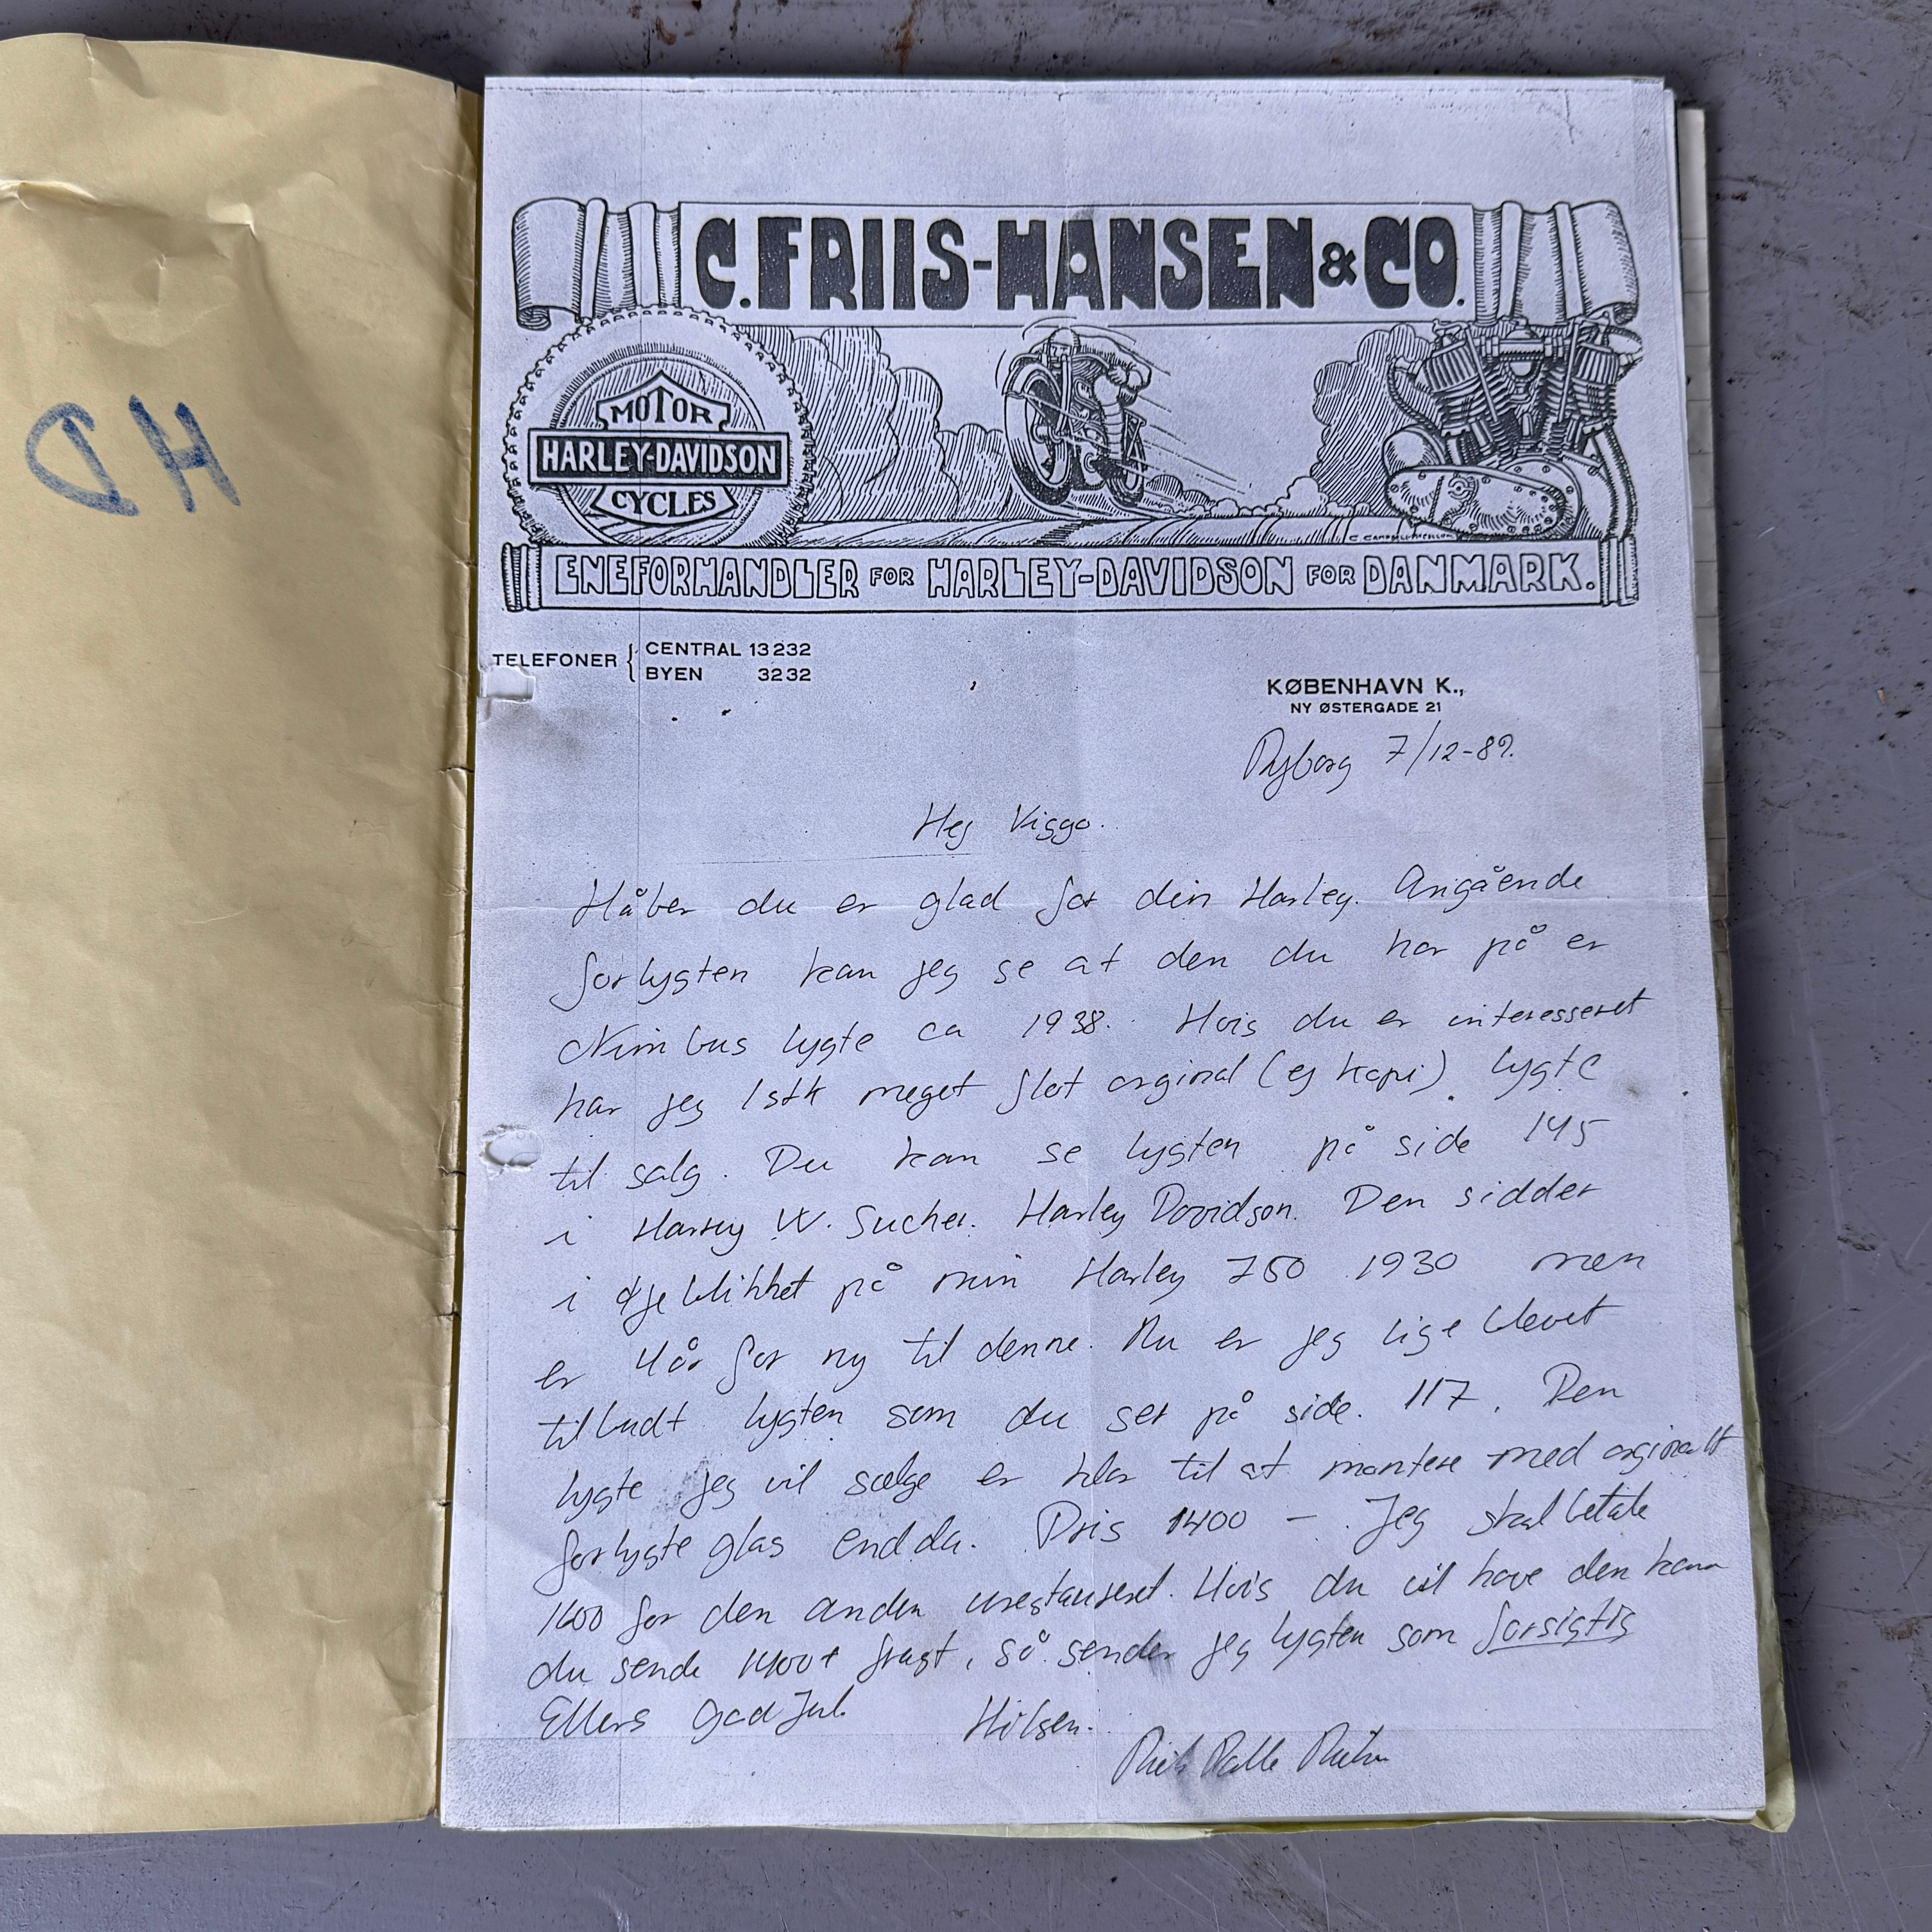 HD
C. FRIIS-HANSEN & CO.
MOTOR
HARLEY-DAVIDSON
CYCLES
ENEFORHANDLER FOR HARLEY-DAVIDSON FOR DANMARK.
TELEFONER { CENTRAL 13232
BYEN 3232
KØBENHAVN K.,
NY ØSTERGADE 21
7/12-89.
Hej Viggo.
Håber du er glad for din Harley. Angående
forlygten kan jeg se at den du har på er
Nimbus lygte ca 1938. Hvis du er interesseret
har jeg 1 stk meget flot orginal (ej kopi) lygte
til salg. Du kan se lygten på side 145
i Harrey W. Sucher. Harley Davidson. Den sidder
i øjeblikket på min Harley 750 1930 men
er 4 år for ny til denne. Nu er jeg lige blevet
tilbudt lygten som du ser på side. 117. Den
lygte jeg vil sælge er klar til at montere med orginalt
forlygte glas endda. Pris 1400 - . Jeg skal betale
1600 for den anden urestaureret. Hvis du vil have den kan
du sende 1400 + fragt, så sender jeg lygten som forsigtig
Ellers God Jul Hilsen.